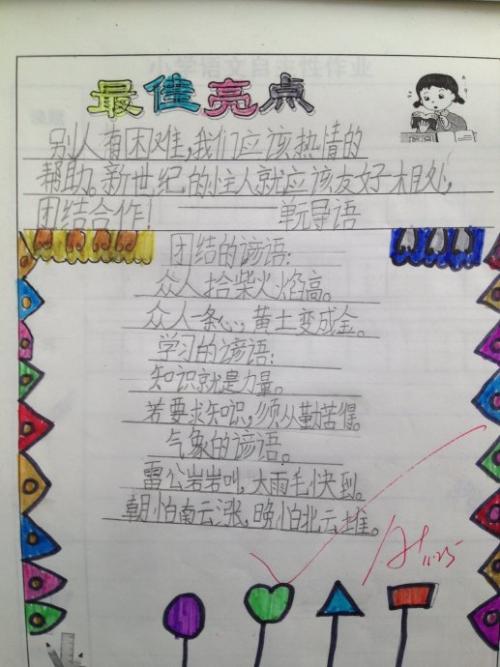 最佳亮点
别人有困难,我们应该热情的
帮助。新世纪的主人就应该友好相处,
团结合作! ——单元导语
团结的谚语:
众人拾柴火焰高。
众人一条心,黄土变成金。
学习的谚语:
知识就是力量。
若要求知识,须从勤苦得。
气象的谚语。
雷公岩岩叫,大雨毛快到。
朝怕南云涨,晚怕北云堆。
11.25